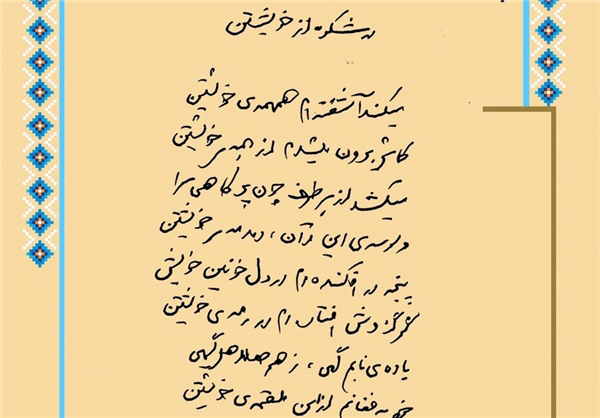 در شکوه از خویشتن
میکند آشفته ام همهمه ی خویشتن
کاش برون میشدم از همه ی خویشتن
میکشد از هر طرف چون پر کاهی مرا
وسوسه ی این و آن ، دمدمه ی خویشتن
پنجه در افکنده ام در دل خونین خویش
گرگ وش افتاده ام در رمه ی خویشتن
باده ی نابم گهی ، زهر هلاهل گهی
خود به فغانم از این ملقمه ی خویشتن